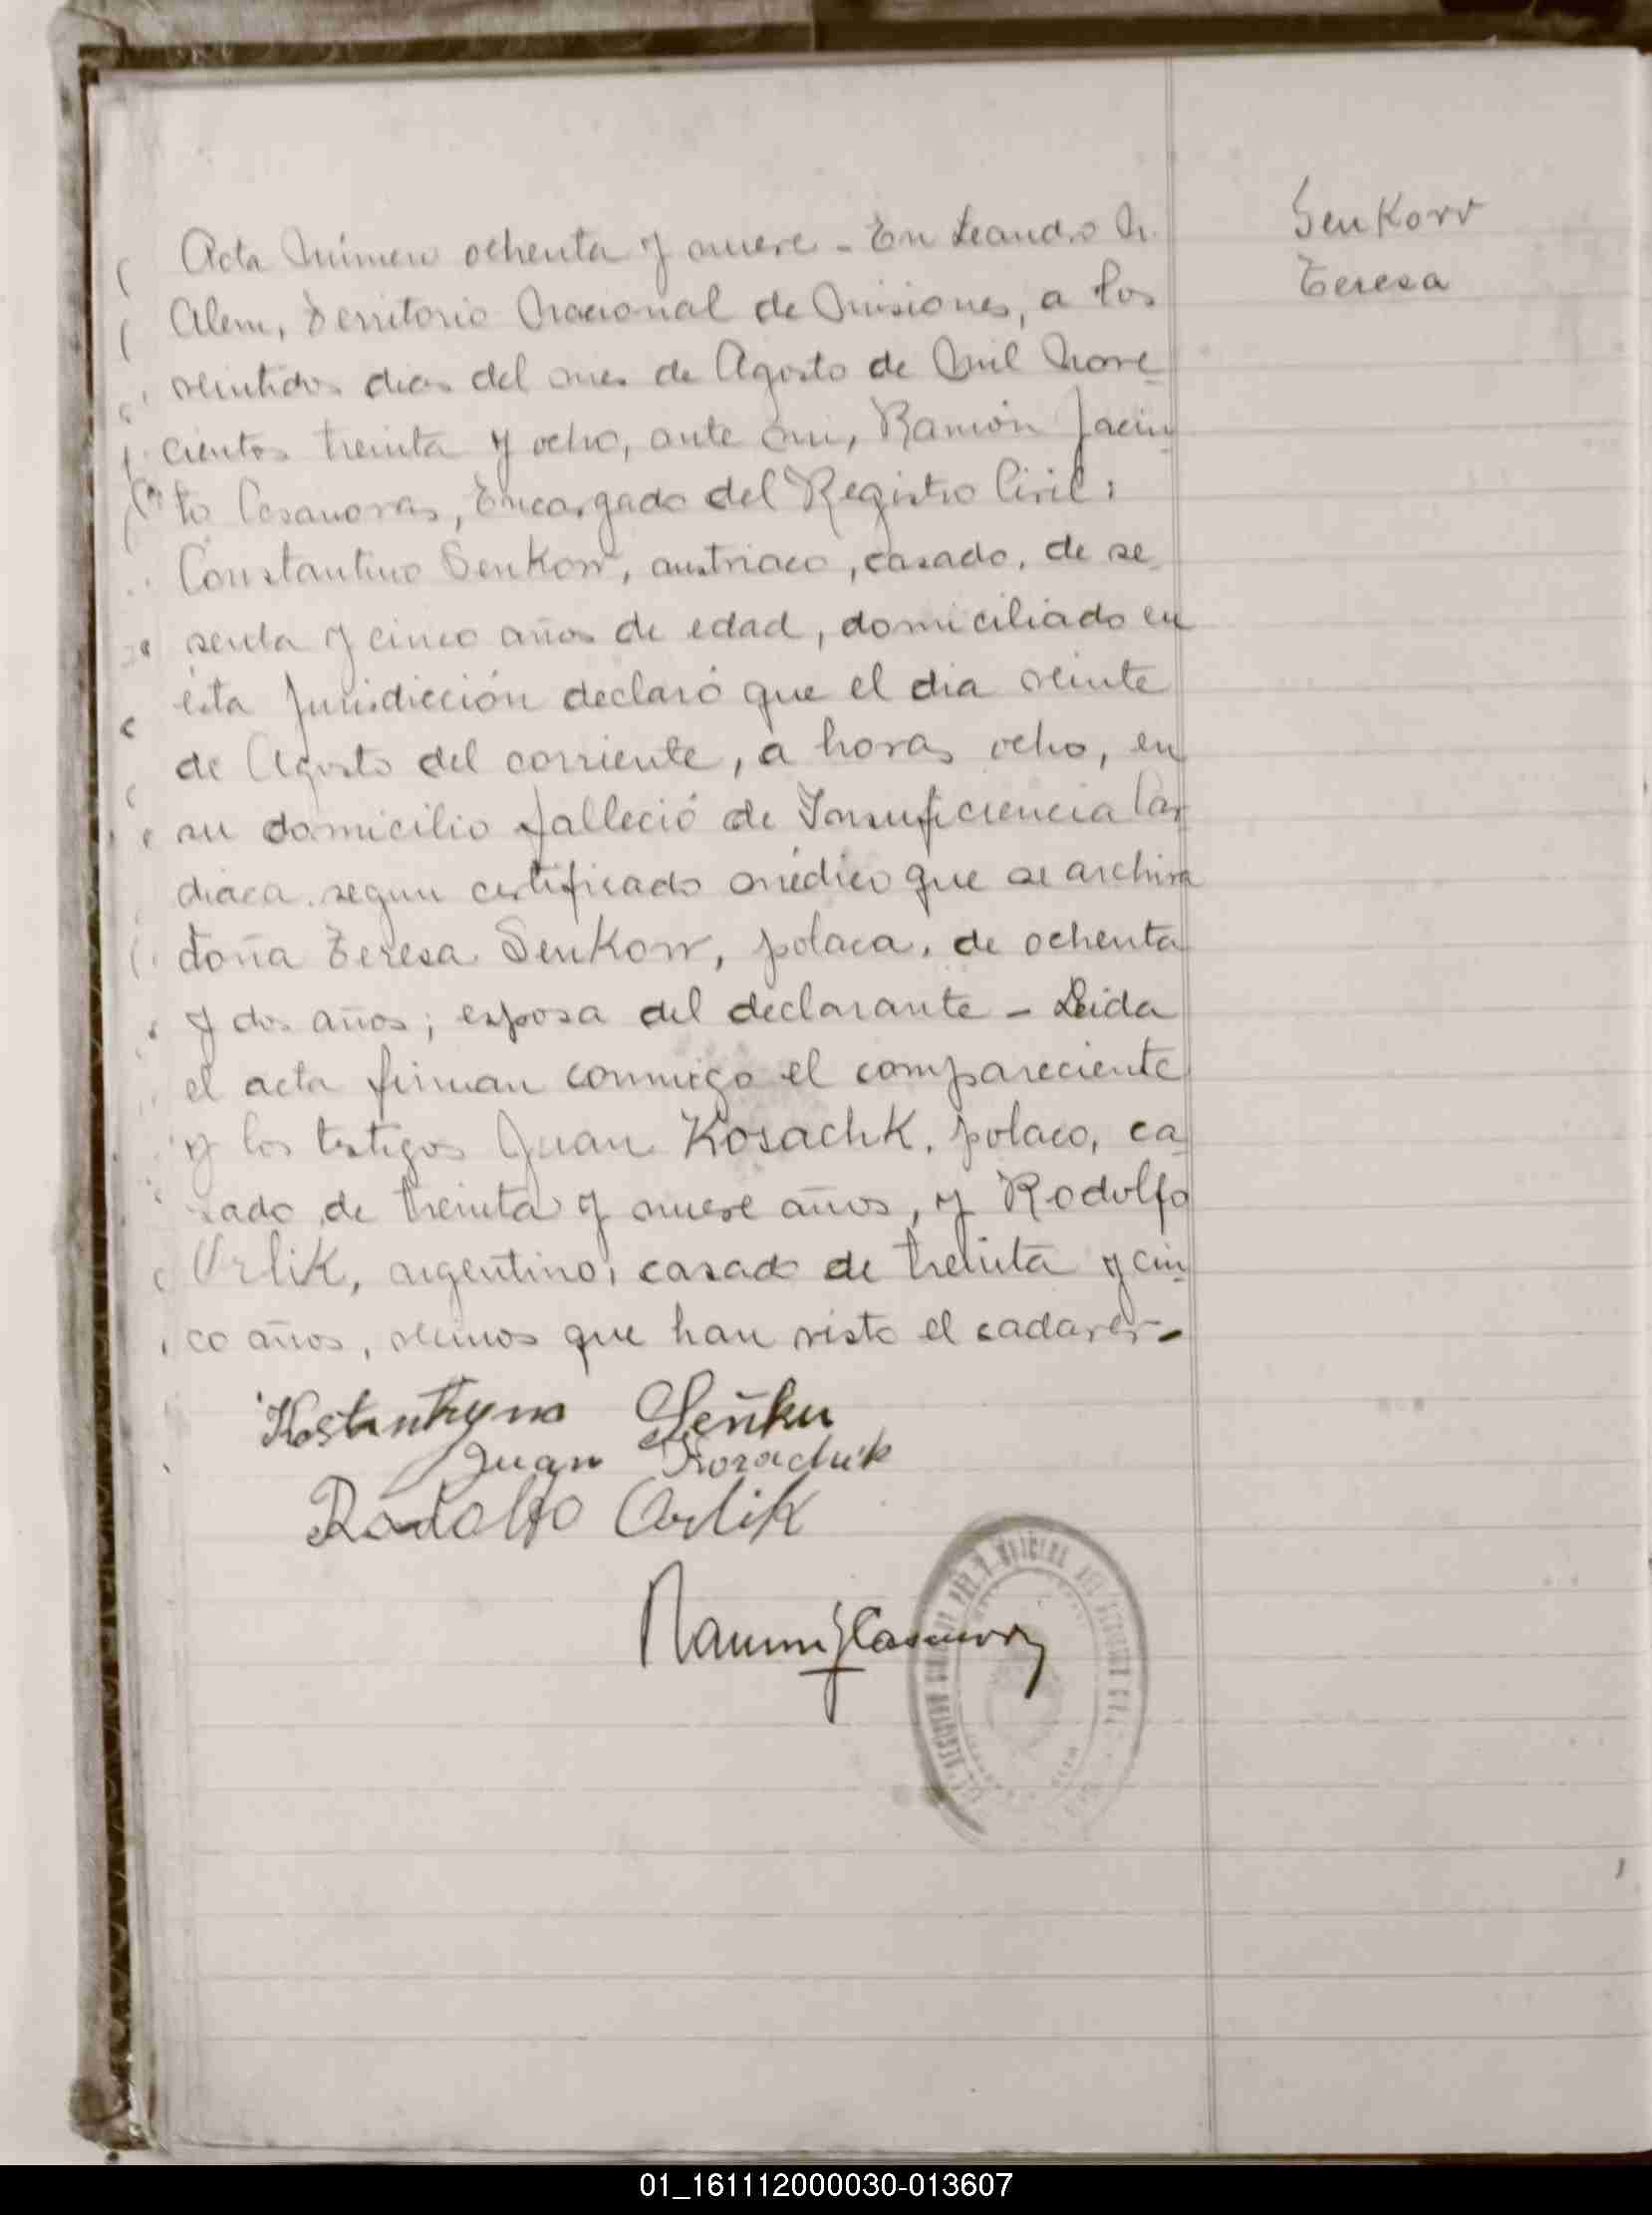 Senkow
Teresa
Acta Número ochenta y nueve - En Leandro N.
Alem, Territorio Nacional de Misiones, a los
veintidos dias del mes de Agosto de Mil Nove-
cientos treinta y ocho, ante mi, Ramón Jacin-
to Casanovas, Encargado del Registro Civil:
Constantino Senkow, austriaco, casado, de se-
senta y cinco años de edad, domiciliado en
ésta Jurisdicción declaró que el dia veinte
de Agosto del corriente, a horas ocho, en
su domicilio falleció de Insuficiencia Car-
diaca segun certificado médico que se archiva
doña Teresa Senkow, polaca, de ochenta
y dos años; esposa del declarante - Leida
el acta firman conmigo el compareciente
y los testigos Juan Kosachk, polaco, ca-
sado de treinta y nueve años, y Rodolfo
Orlik, argentino, casado de treinta y cin-
co años, vecinos que han visto el cadaver-
Kostantyno Seńku
Juan Kozachuk
Rodolfo Orlik
Ramon J Casanovas
01_161112000030-013607